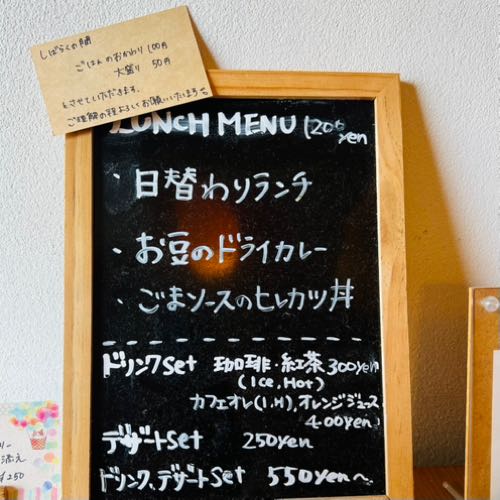 しばらくの間
ごはんのおかわり 100円
大盛り 50円
とさせていただきます。
ご理解の程よろしくお願いいたします
LUNCH MENU 1200yen
・日替わりランチ
・お豆のドライカレー
・ごまソースのヒレカツ丼
ドリンクSet 珈琲・紅茶 300yen
(Ice, Hot)
カフェオレ(I.H), オレンジジュース
400yen
デザートSet 250yen
ドリンク、デザートSet 550yen〜
リー
添え
¥250